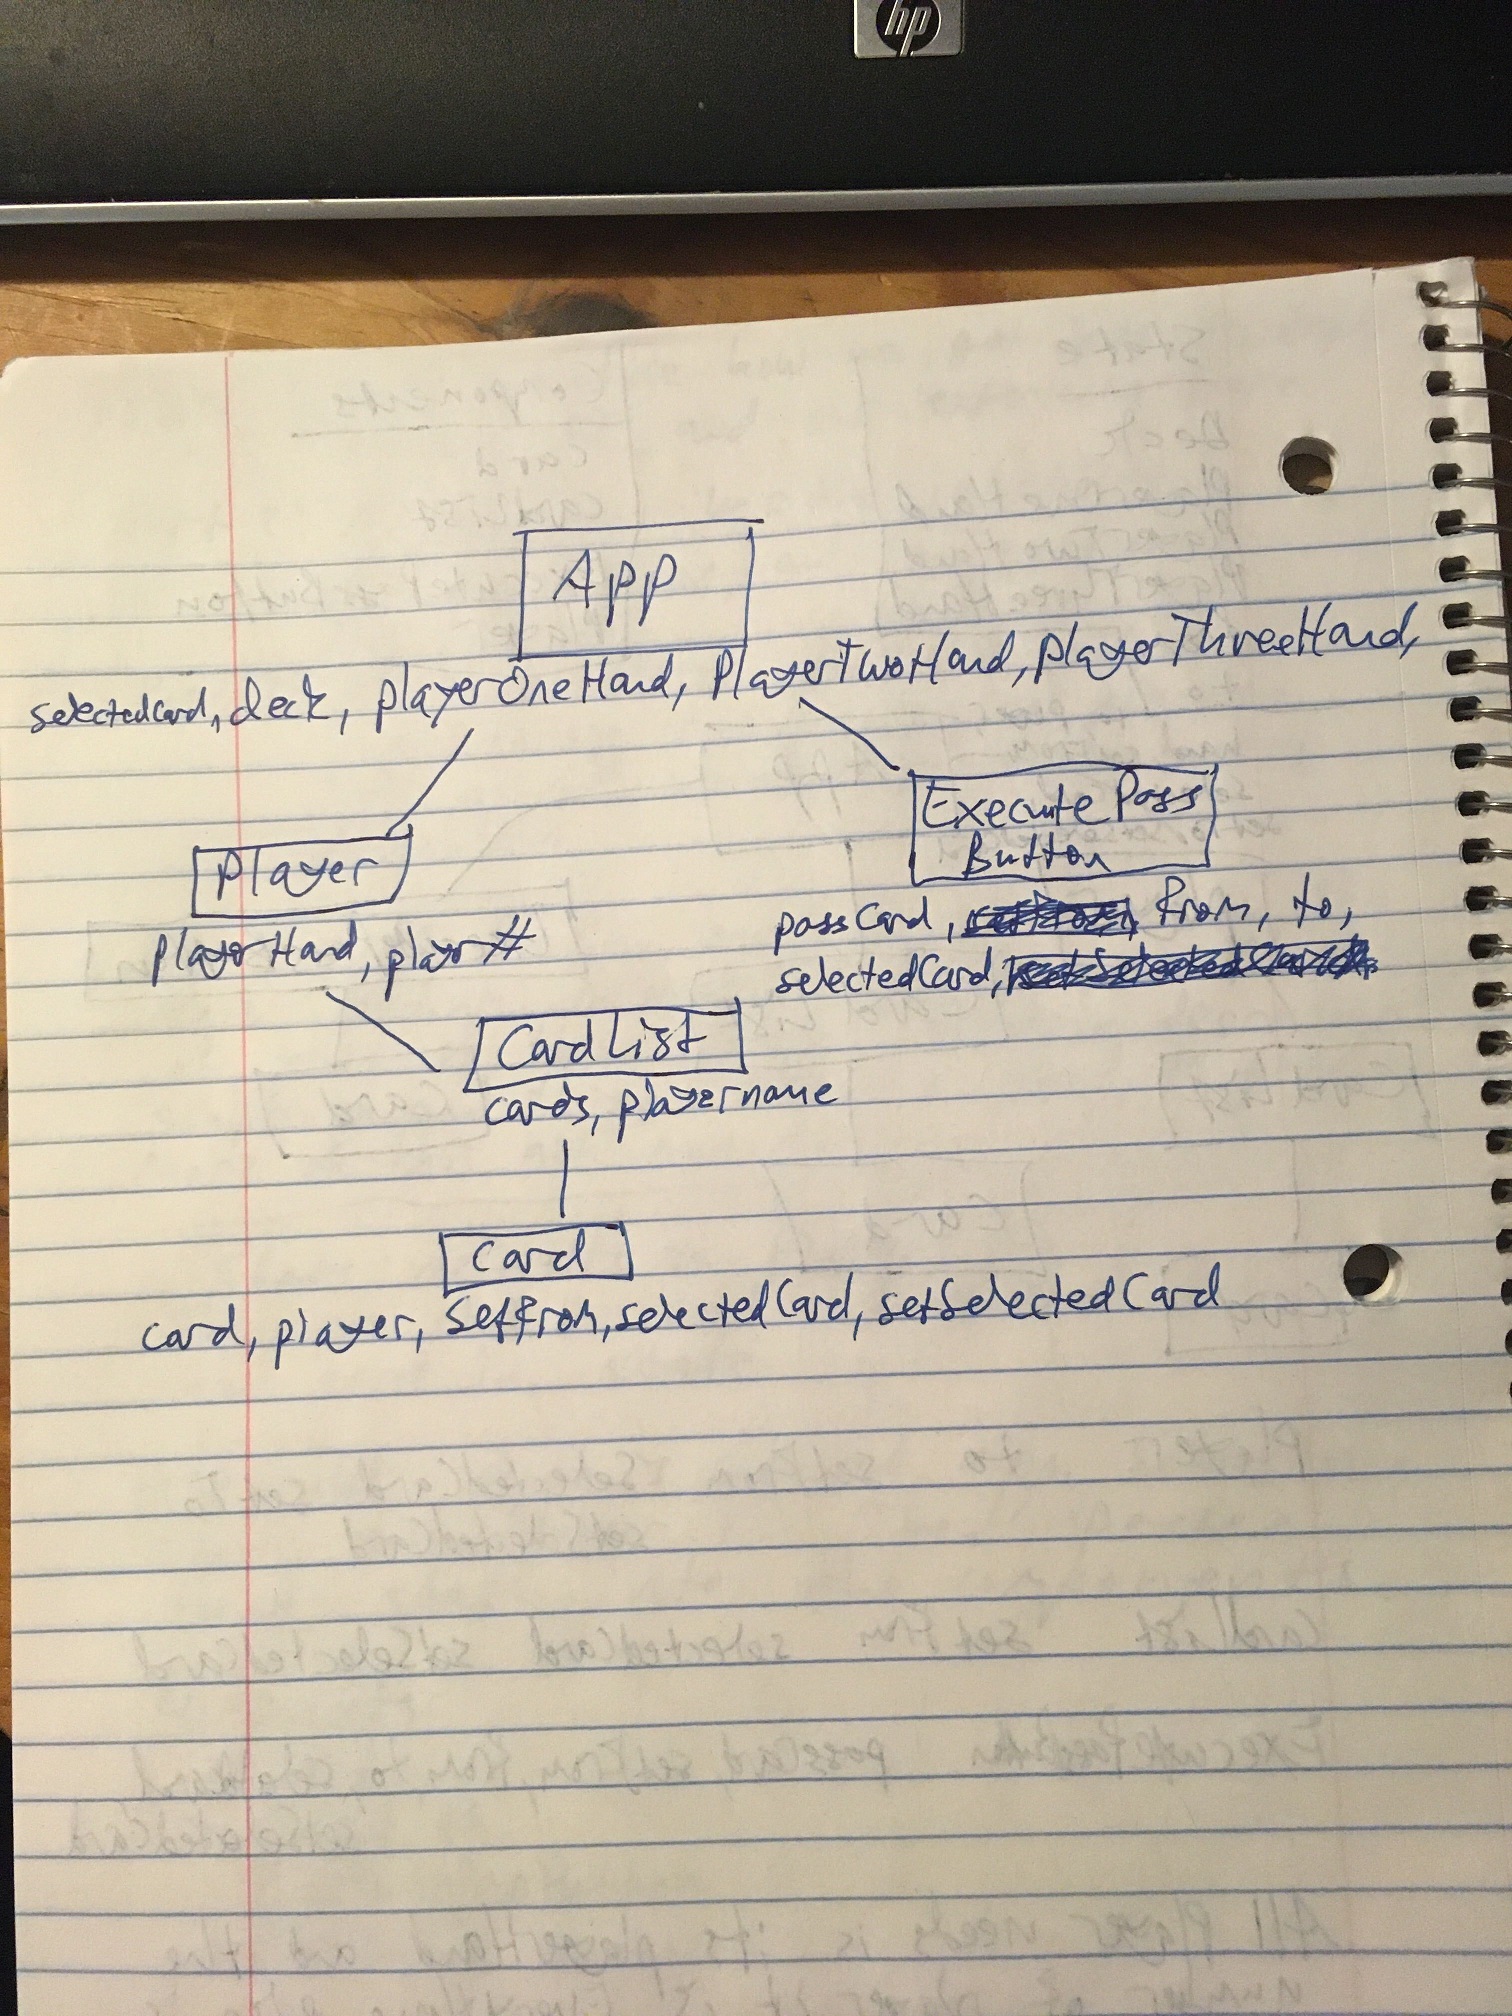 hp
App
selectedCard, deck, playerOneHand, PlayerTwoHand, playerThreeHand,
Player
ExecutePass
Button
PlayerHand, player#
passCard, from, to,
selectedCard,
CardList
cards, playername
Card
card, player, setFrom, selectedCard, setSelectedCard